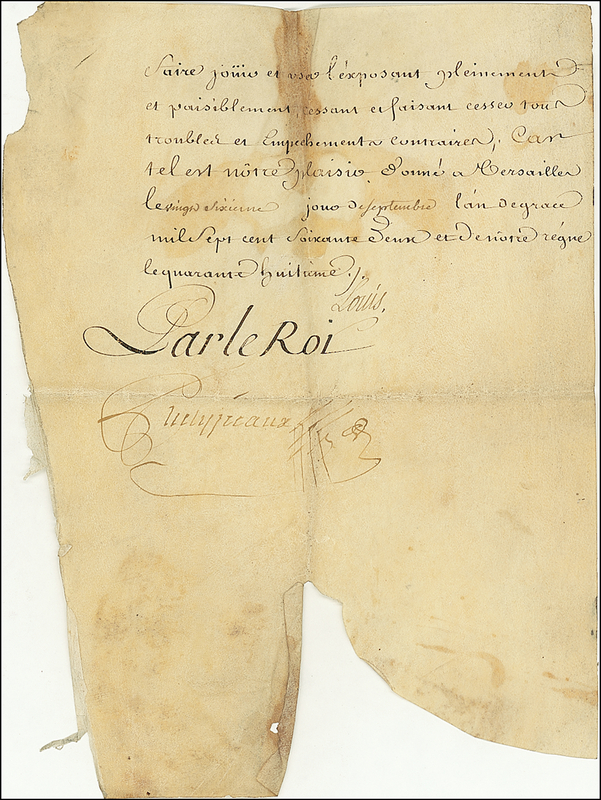 faire joüir et user l'éxposant pleinement
et paisiblement, cessant et faisant cesser tous
troubles et Empechements contraires; Car
tel est nôtre plaisir. Donné a Versailles
le vingt sixieme jour de septembre l'an de grace
mil Sept cent Soixante deux et de nôtre régne
le quarante huitiême.
Louis.
Par le Roi
Phelypeaux